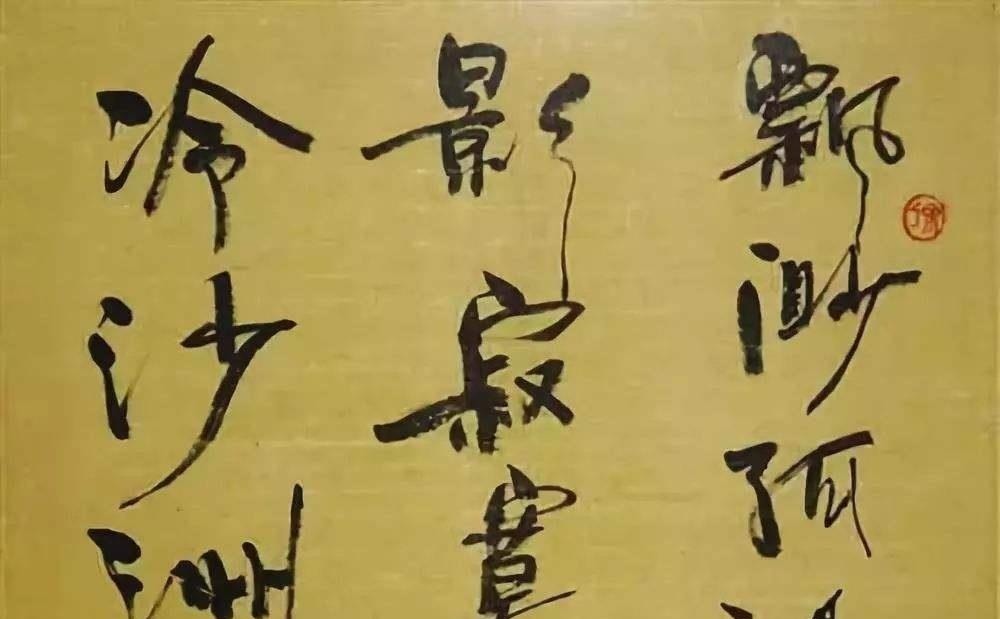 飘渺孤
影寂寞
冷沙洲